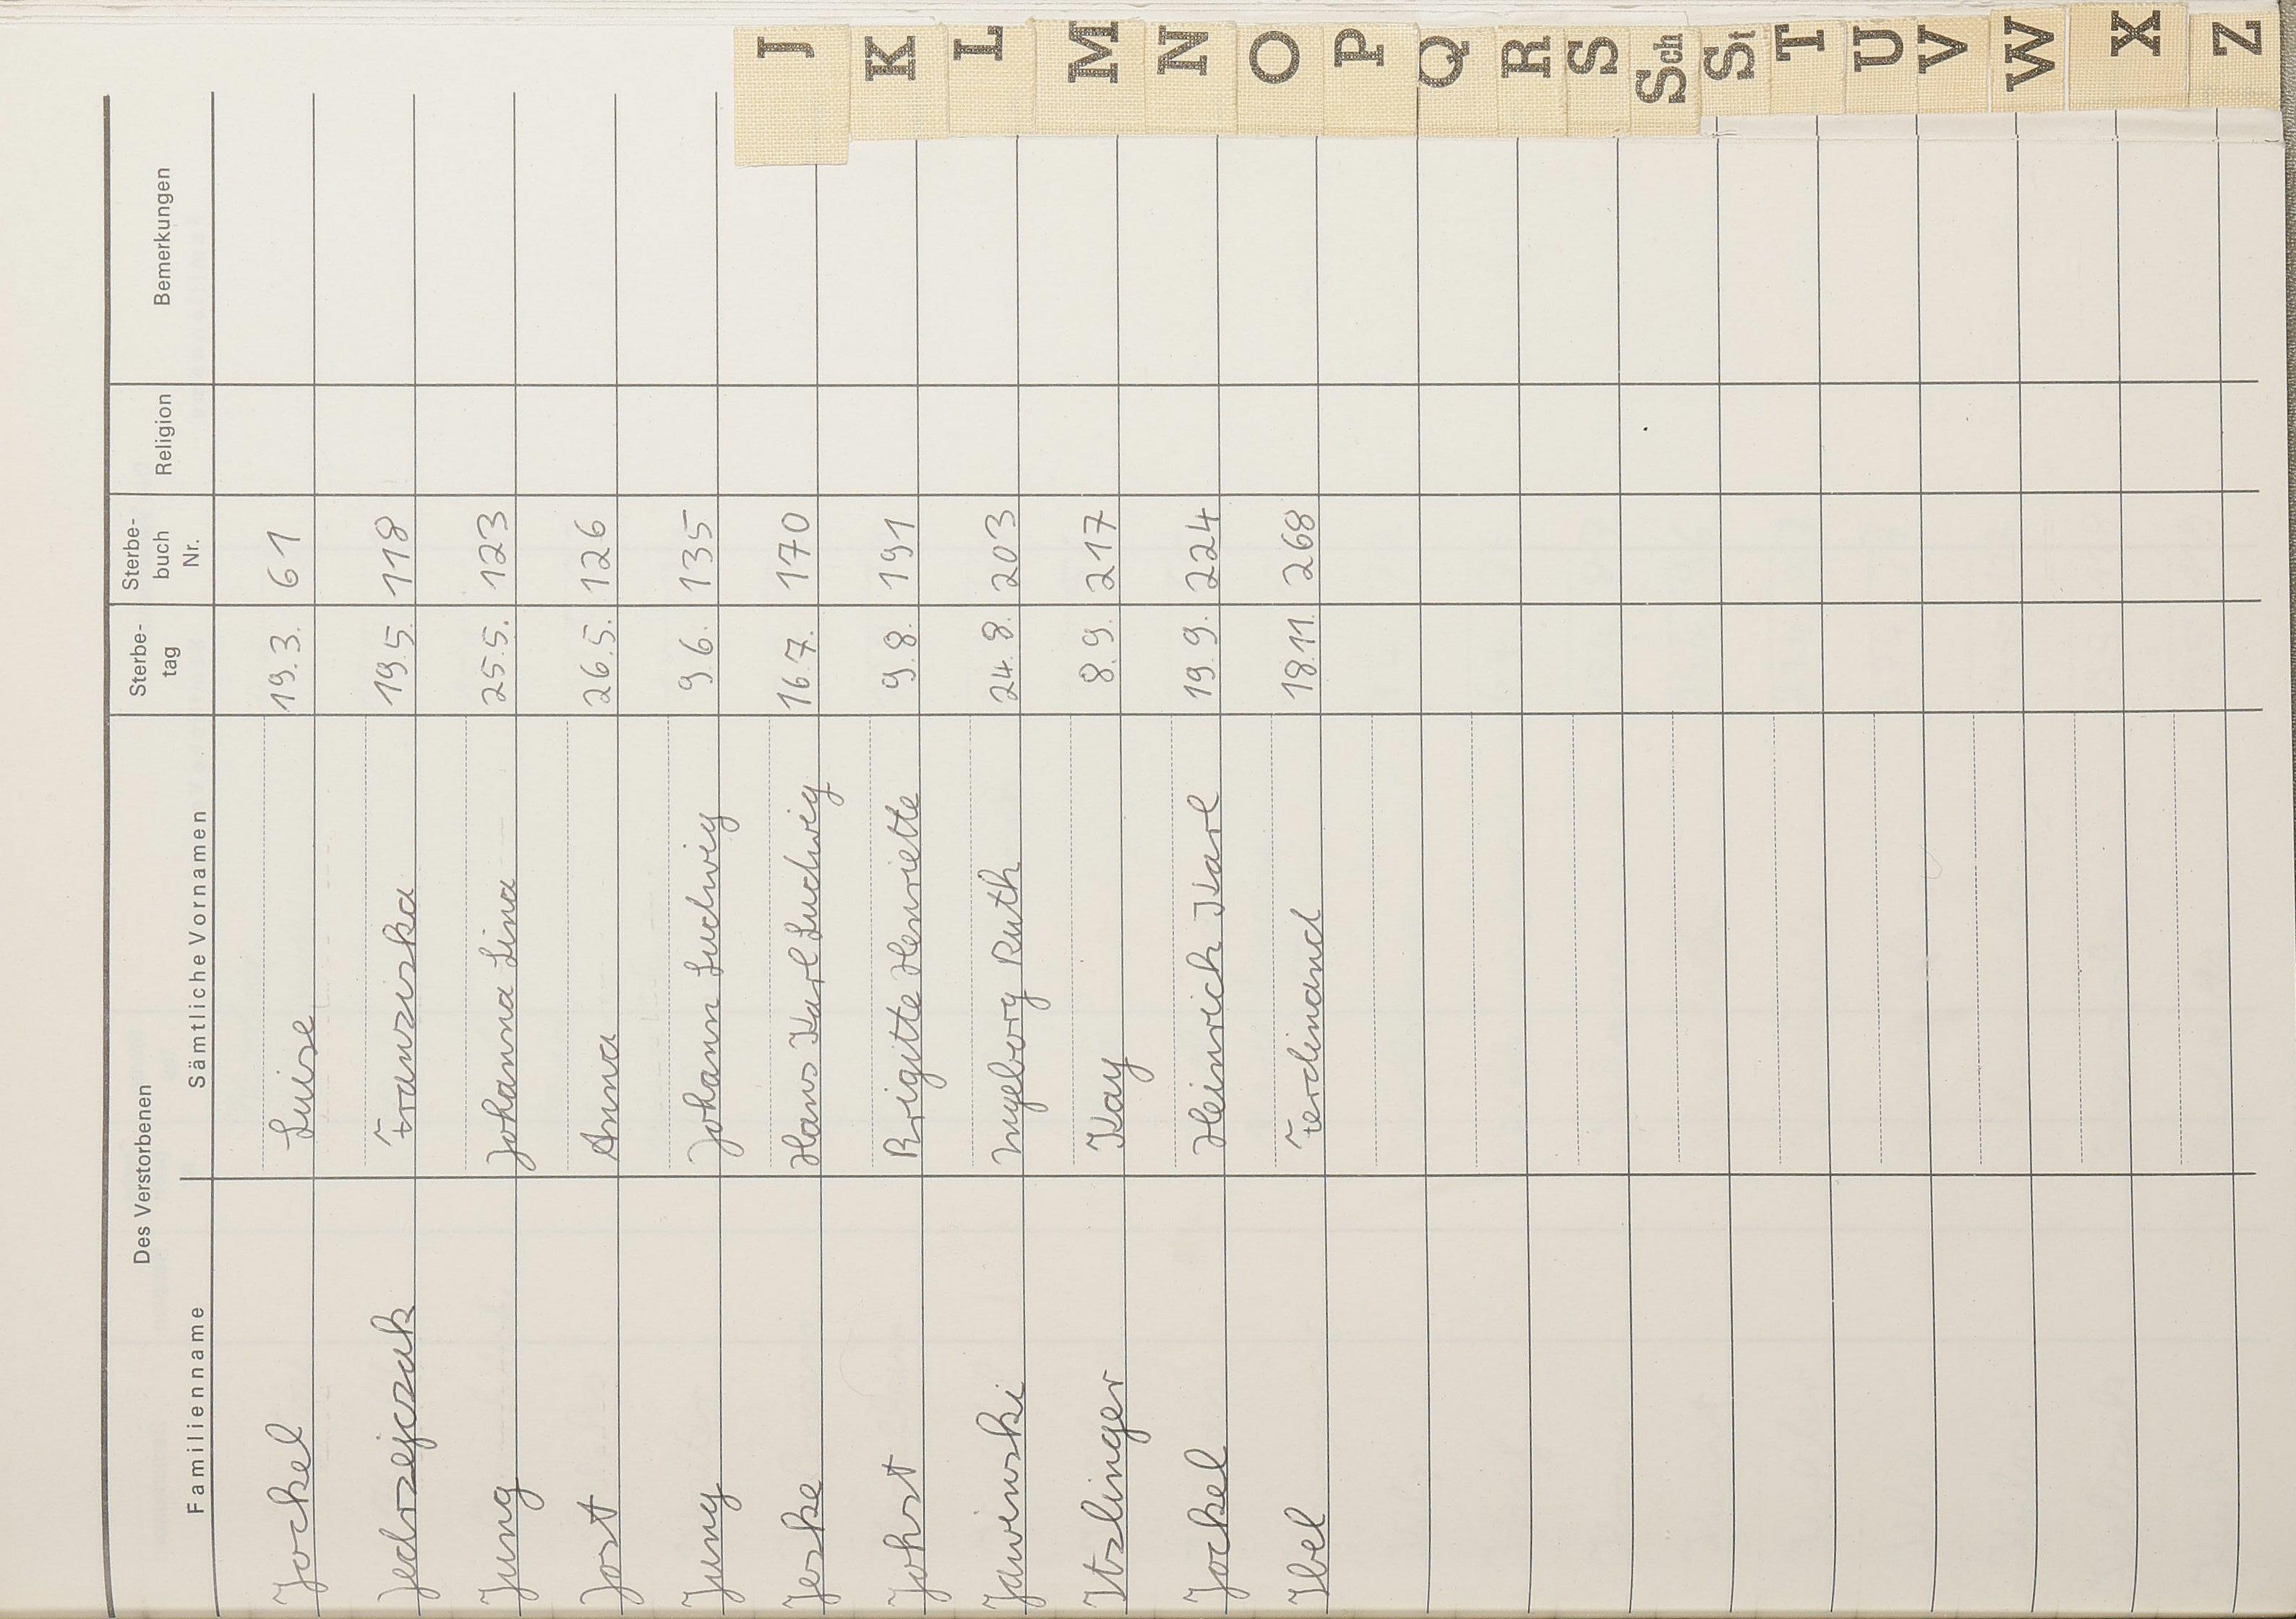 Des Verstorbenen
Familienname Sämtliche Vornamen Sterbe-tag Sterbe-buch Nr. Religion Bemerkungen
Jockel Luise 19.3. 61
Jedrzejczak Franziska 19.5. 118
Jung Johanna Lina 25.5. 123
Jost Anna 26.5. 126
Jung Johann Ludwig 9.6. 135
Jeske Hans Karl Ludwig 16.7. 170
Johst Brigitte Henriette 9.8. 191
Jawinski Ingeborg Ruth 24.8. 203
Itzlinger Kay 8.9. 217
Jockel Heinrich Karl 19.9. 224
Ibel Ferdinand 18.11. 268
J
K
L
M
N
O
P
Q
R
S
Sch
St
T
U
V
W
X
Z